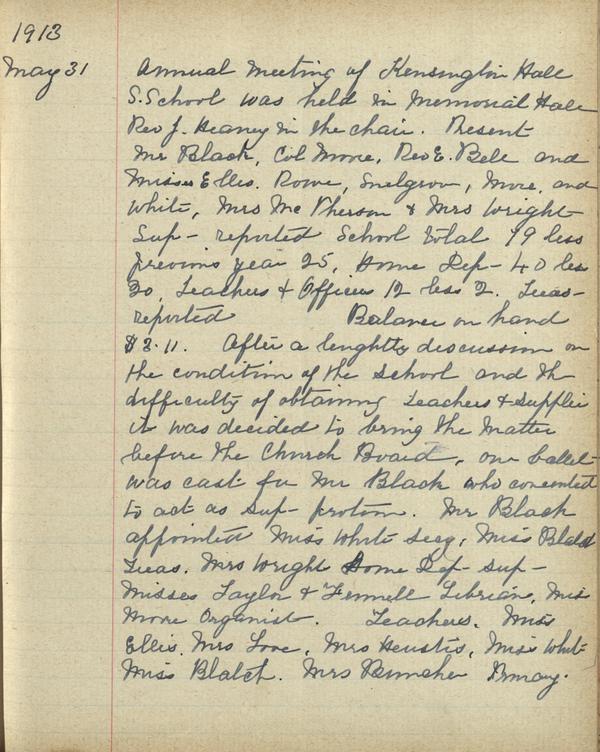 1913
May 31 Annual meeting of Kensington Hall
S. School was held in Memorial Hall
Rev J. Heaney in the chair. Present
Mr Black, Col Moore, Rev E. Bell and
Misses Ellis. Rowe, Snelgrove, Moore, and
White, Mrs McPherson & Mrs Wright
Sup- reported School total 79 less
previous year 25, Home Dep- 40 less
20, Teachers & Officers 12 less 2. Treas-
reported Balance on hand
$3.11. After a lenghty discussion on
the condition of the school and the
difficulty of obtaining Teachers & Supplies
it was decided to bring the matter
before the Church Board, one ballot
was cast for Mr Black who consented
to act as Sup- protem. Mr Black
appointed Miss White Secy, Miss Blatch
Treas. Mrs Wright Home Dep- Sup-
Misses Taylor & Fennell Librians, Miss
Moore Organist. Teachers. Miss
Ellis, Mrs Love, Mrs Heustis, Miss White
Miss Blatch. Mrs Primary.